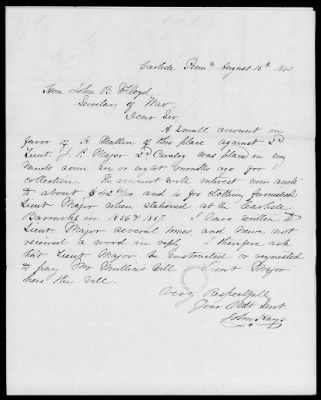 Carlisle Penna August 15th
Hon John B. Floyd
Secretary of War
Dear Sir
A small account in
favor of H Mullen of this place against 2d
Lieut. J. P. Major 2d Cavalry was placed in my
hands some six or eight months ago for
collection. The account with interest now amts
to about $ and is for clothing furnished
Lieut Major when stationed at the Carlisle
Barracks in 1856 & 1857. I have written to
Lieut Major several times and have not
received a word in reply. I therefore ask
that Lieut Major be instructed or requested
to pay Mr Mullin's bill. Lieut Major
has the bill.
Very Respectfully
Your Obdt Servt
John Hays